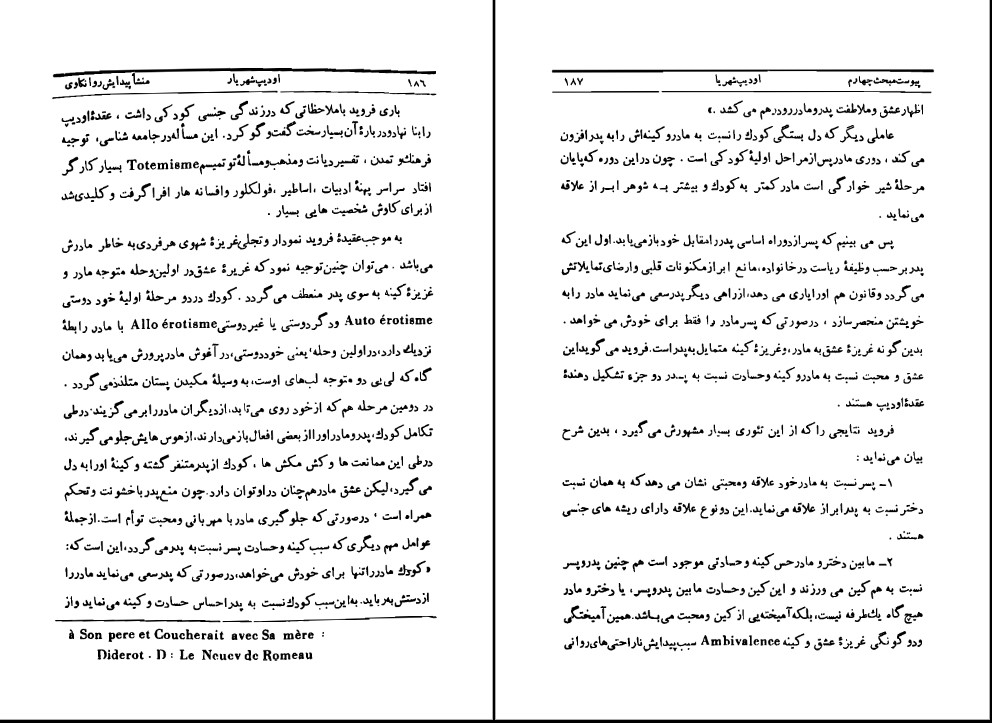 ۱۸۶ اودیپ شهریار منشأ پیدایش روانکاوی
باری فروید باملاحظاتی که درزندگی جنسی کودکی داشت ، عقدۀ اودیپ
رابنا نهاد ودربارۀ آن بسیار سخت گفت و گو کرد. این مسأله در جامعه شناسی، توجیه
فرهنگ و تمدن ، تفسیر دیانت ومذهب ومسألۀ توتمیسم Totemisme بسیار کارگر
افتاد سراسر پهنۀ ادبیات ،اساطیر ،فولکلور وافسانه هار افراگرفت و کلیدی شد
از برای کاوش شخصیت هایی بسیار .
به موجب عقیدۀ فروید نمودار وتجلی غریزۀ شهوی هر فردی به خاطر مادرش
می‌باشد . می‌توان چنین توجیه نمود که غریزۀ عشق در اولین وحله متوجه مادر و
غریزۀ کینه به سوی پدر منعطف می‌گردد . کودك دردو مرحلۀ اولیۀ خود دوستی
Auto érotisme ودگردوستی یا غیر دوستی Allo érotisme با مادر رابطۀ
نزدیك دارد، در اولین وحله، یعنی خوددوستی، در آغوش مادر پرورش می‌یابد وهمان
گاه که لی‌بی دو متوجه لب‌های اوست، به وسیلۀ مکیدن پستان متلذذ می‌گردد .
در دومین مرحله هم که از خود روی می‌تابد، از دیگران مادر را بر می‌گزیند. درطی
تکامل کودك، پدر ومادر اورا از بعضی افعال باز می‌دارند، از هوس هایش جلو می‌گیرند،
درطی این ممانعت ها و کش مکش ها ، کودك از پدر متنفر گشته و کینۀ اورا به دل
می‌گیرد، لیکن عشق مادر هم چنان در او توان دارد. چون منع پدر باخشونت وتحکم
همراه است ، درصورتی که جلو گیری مادر با مهربانی ومحبت توأم است. از جملۀ
عوامل مهم دیگری که سبب کینه وحسادت پسر نسبت به پدر می‌گردد، این است که:
«کودك مادر را تنها برای خودش می‌خواهد، در صورتی که پدر سعی می‌نماید مادر را
از دستش به رباید. به این سبب کودك نسبت به پدر احساس حسادت و کینه می‌نماید واز
à Son pere et Coucherait avec Sa mère :
Diderot . D : Le Neuev de Romeau
پیوست مبحث چهارم اودیپ شهریا ۱۸۷
اظهار عشق وملاطفت پدر ومادر رودرهم می‌کشد .»
عاملی دیگر که دل بستگی کودك را نسبت به مادر و کینه‌اش را به پدر افزون
می‌کند ، دوری مادر پس از مراحل اولیۀ کودکی است . چون در این دوره که پایان
مرحلۀ شیر خوارگی است مادر کمتر به کودك و بیشتر به شوهر ابراز علاقه
می‌نماید .
پس می بینیم که پسر از دوراه اساسی پدر را مقابل خود باز می‌یابد. اول این که
پدر بر حسب وظیفۀ ریاست در خانواده، مانع ابراز مکنونات قلبی وارضای تمایلاتش
می‌گردد وقانون هم اورایاری می دهد، از راهی دیگر پدر سعی می‌نماید مادر را به
خویشتن منحصر سازد ، در صورتی که پسر مادر را فقط برای خودش می خواهد .
بدین گونه غریزۀ عشق به مادر، وغریزۀ کینه متمایل به پدر است. فروید می گوید این
عشق و محبت نسبت به مادر و کینه وحسادت نسبت به پدر دو جزء تشکیل دهندۀ
عقدۀ اودیپ هستند .
فروید نتایجی را که از این تئوری بسیار مشهورش می‌گیرد ، بدین شرح
بیان می‌نماید :
۱ــ پسر نسبت به مادر خود علاقه ومحبتی نشان می دهد که به همان نسبت
دختر نسبت به پدر ابراز علاقه می‌نماید. این دونوع علاقه دارای ریشه های جنسی
هستند .
۲ــ مابین دختر و مادر حس کینه وحسادتی موجود است هم چنین پدر وپسر
نسبت به هم کین می ورزند و این کین وحسادت مابین پدر وپسر، یا دختر و مادر
هیچ گاه یك طرفه نیست، بلکه آمیخته‌یی از کین ومحبت می‌باشد. همین آمیختگی
ودو گونگی غریزۀ عشق و کینه Ambivalence سبب پیدایش ناراحتی‌های روانی